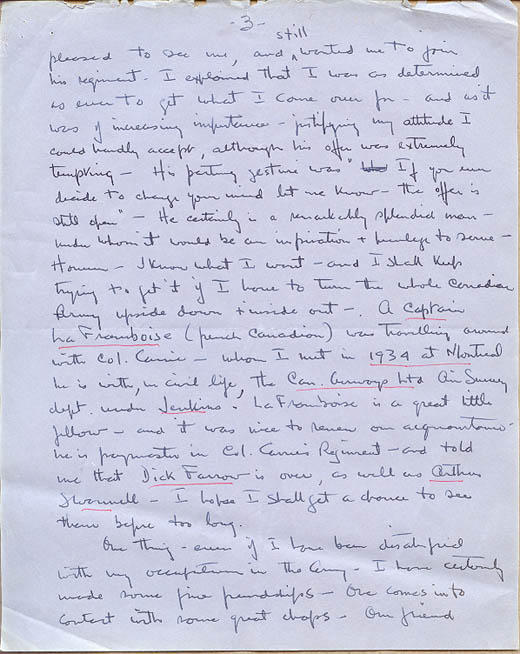 - 3 -
still
pleased to see me, and ^ wanted me to join
his regiment - I explained that I was as determined
as ever to get what I came over for - and as it
was of increasing importance - justifying my attitude I
could hardly accept, although his offer was extremely
tempting - His parting gesture was " If you ever
decide to change your mind let me know - the offer is
still open" - He certainly is a remarkably splendid man -
under whom it would be an inspiration + privilege to serve -
However - I know what I want - and I shall keep
trying to get it if I have to turn the whole Canadian
Army upside down + inside out -. A Captain
LaFramboise (french Canadian) was travelling around
with Col. Currie - whom I met in 1934 at Montreal
he is with, in civil life, the Can. Airways Ltd Air Survey
dept. under Jenkins. LaFramboise is a great little
fellow - and it was nice to renew our acquaintance -
he is paymaster in Col. Currie's Regiment - and told
me that Dick Farrow is over, as well as Arthur
- I hope I shall get a chance to see
them before too long.
One thing - even if I have been dissatisfied
with my occupation in the Army - I have certainly
made some fine friendships - One comes into
contact with some great chaps - Our friend